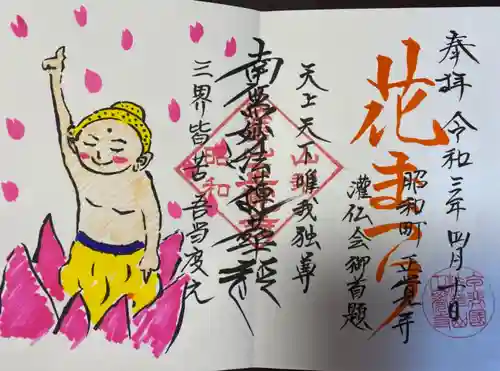 奉拝 令和三年 四月十日
花まつり
昭和町 正覚寺
灌仏会御首題
天上天下唯我独尊
南無妙法蓮華経
三界皆苦吾当度之
昭和